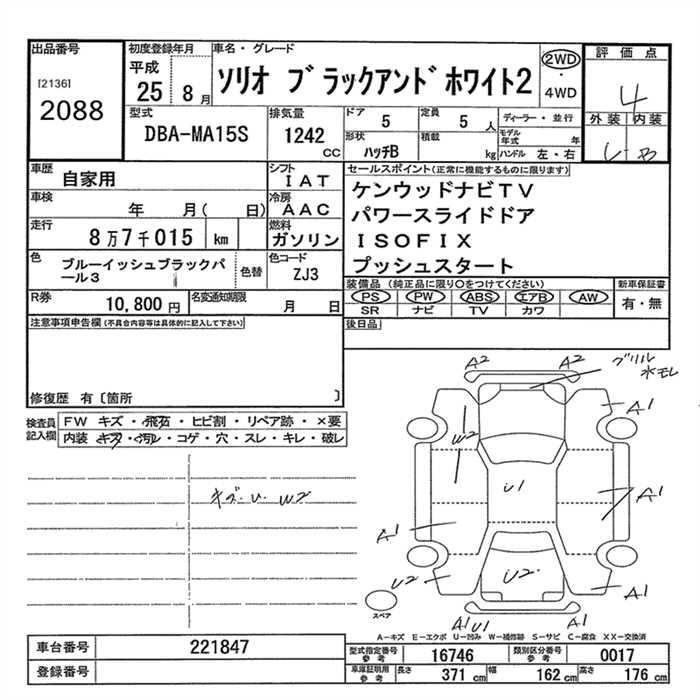 出品番号
[2136]
2088
初度登録年月
平成
25 8 月
車名・グレード
ソリオ ブラックアンドホワイト2
2WD
・
4WD
評価点
4
外装 内装
B
型式
DBA-MA15S
排気量
1242
CC
ドア
5
定員
5 人
ディーラー・並行
形状
ハッチB
積載
kg
モデル年式 年
ハンドル 左・右
車歴
自家用
シフト
IAT
車検
年 月( 日)
冷房
AAC
走行
8万7千015 km
燃料
ガソリン
色
ブルーイッシュブラックパール3
色替
色コード
ZJ3
R券
10,800 円
名変通知期限
月 日
セールスポイント(正常に機能するものに限ります)
ケンウッドナビTV
パワースライドドア
ISOFIX
プッシュスタート
装備品(純正品に限り〇をつけてください)
PS PW ABS エアB AW
SR ナビ TV カワ
新車保証書
有・無
後日品
注意事項申告欄(不具合内容等は具体的に記入して下さい)
修復歴 有〔箇所 〕
検査員記入欄
FW キズ・飛石・ヒビ割・リペア跡・×要
内装 キズ・汚レ・コゲ・穴・スレ・キレ・破レ
キズ・U・W2
A2
A2
グリル
水モレ
A1
A1
W2
U1
A1
A1
U2
U2
A1
A1U1
A1
スペア
A-キズ E-エクボ U-凹み W-補修跡 S-サビ C-腐食 XX-交換済
車台番号
221847
登録番号
型式指定番号
参考
16746
類別区分番号
参考
0017
車庫証明用
参考
長さ
371 cm
幅
162 cm
高さ
176 cm